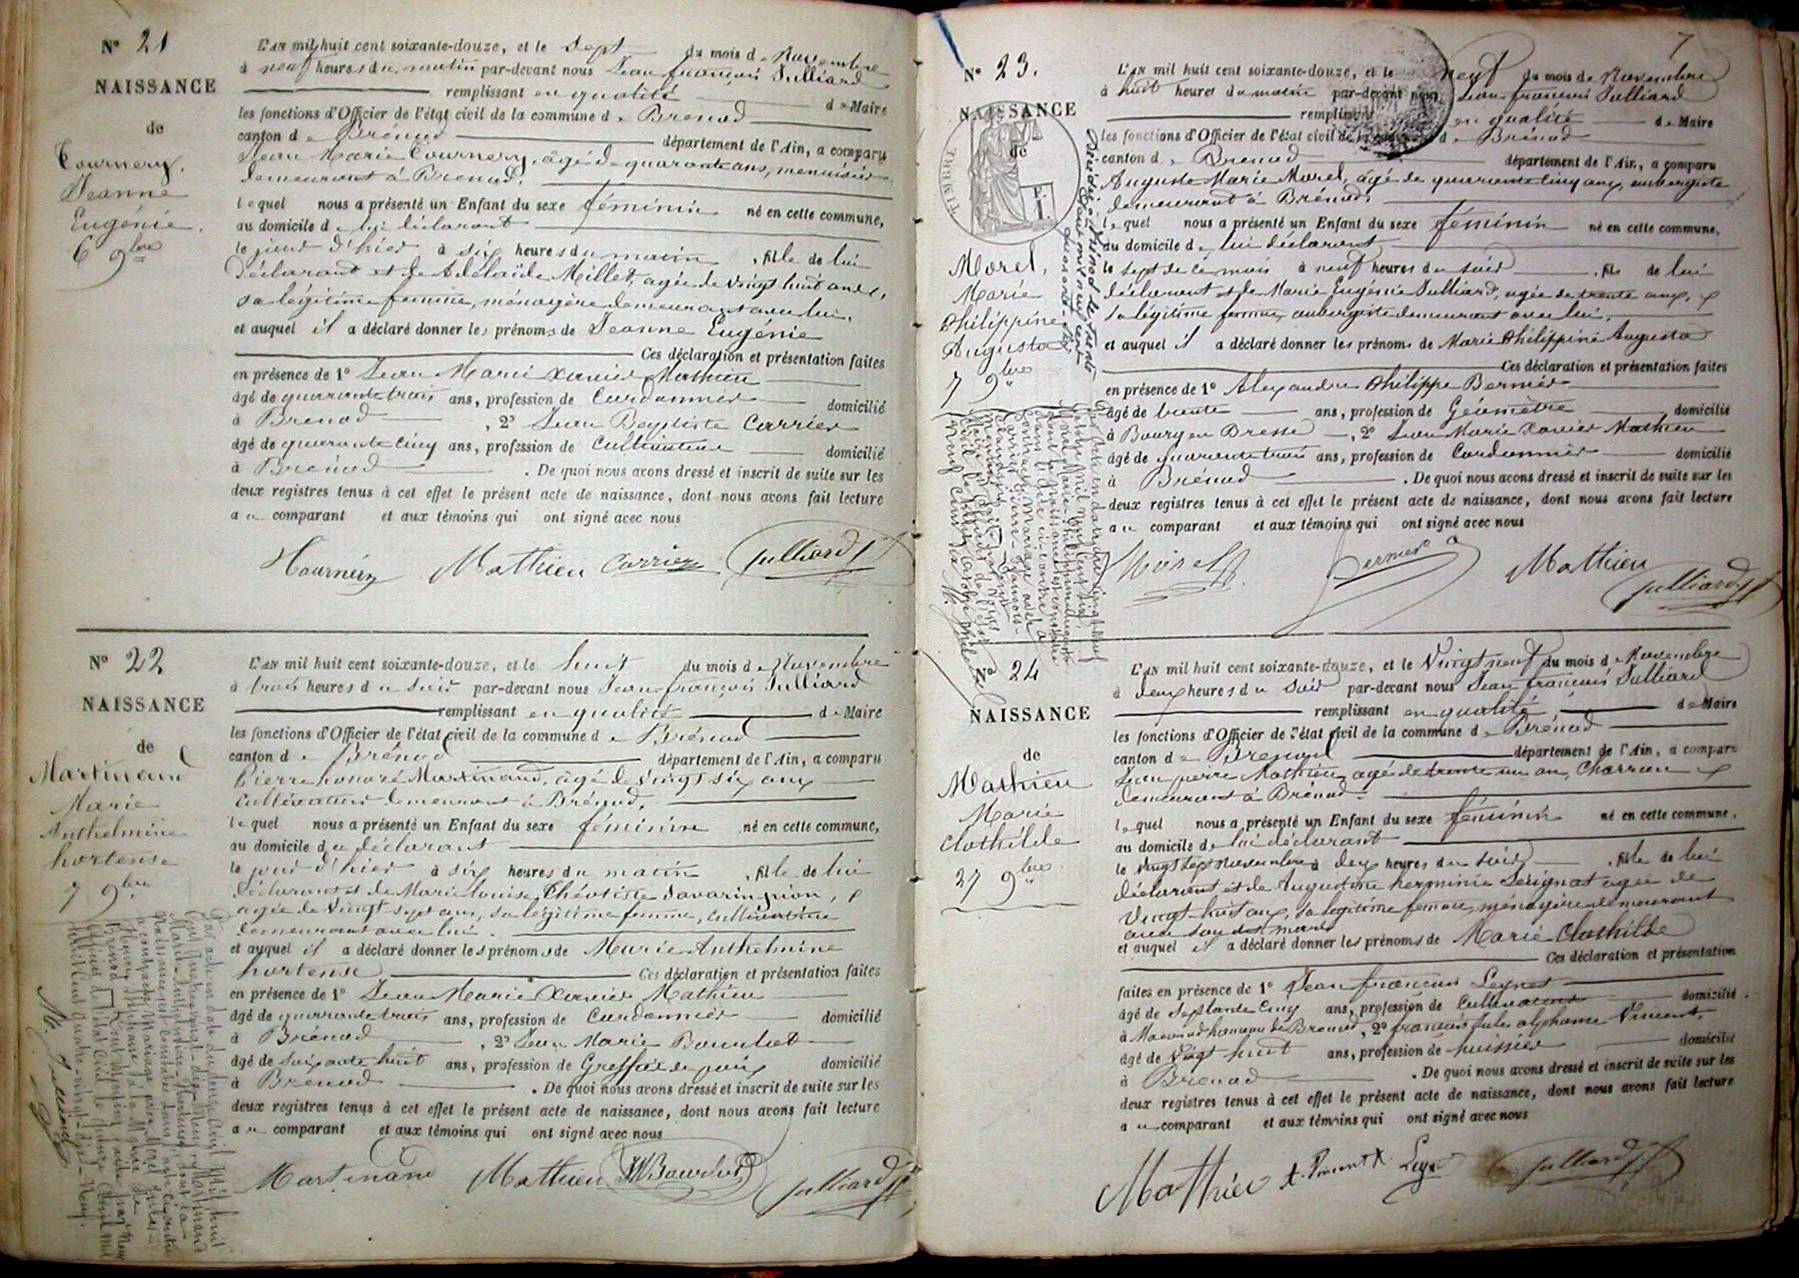 N° 21
NAISSANCE
de
Tournery,
Jeanne
Eugénie.
6 9bre
L'AN mil huit cent soixante-douze, et le Sept du mois de Novembre
à neuf heures du matin par-devant nous Jean françois Julliard
remplissant en qualité de Maire
les fonctions d'Officier de l'état civil de la commune de Brenod
canton de Brénod département de l'Ain, a comparu
Jean Marie Tournery, âgé de quarante ans, menuisier
demeurant à Brenod.
lequel nous a présenté un Enfant du sexe féminin né en cette commune,
au domicile de lui déclarant
le jour d'hier à six heures du matin, fille de lui
déclarant et de Adélaïde Millet, agée de vingt huit ans,
sa légitime femme, ménagère demeurant avec lui.
et auquel il a déclaré donner les prénoms de Jeanne Eugénie
Ces déclaration et présentation faites
en présence de 1° Jean Marie Xavier Mathieu
âgé de quarante trois ans, profession de Cordonnier domicilié
à Brenod, 2° Jean Baptiste Carrier
âgé de quarante cinq ans, profession de Cultivateur domicilié
à Brénod. De quoi nous avons dressé et inscrit de suite sur les
deux registres tenus à cet effet le présent acte de naissance, dont nous avons fait lecture
au comparant et aux témoins qui ont signé avec nous
Mathieu Carrier Julliard
N° 22
NAISSANCE
de
Martinand
Marie
Anthelmine
hortense
7 9bre
L'AN mil huit cent soixante-douze, et le huit du mois de Novembre
à trois heures du soir par-devant nous Jean françois Julliard
remplissant en qualité de Maire
les fonctions d'Officier de l'état civil de la commune de Brénod
canton de Brénod département de l'Ain, a comparu
Pierre honoré Martinand, âgé de vingt six ans
Cultivateur demeurant à Brénod.
lequel nous a présenté un Enfant du sexe féminin né en cette commune,
au domicile du déclarant
le jour d'hier à six heures du matin, fille de lui
déclarant et de Marie Louise Théotiste Savarin pion,
agée de vingt sept ans, sa légitime femme, cultivatrice
demeurant avec lui.
et auquel il a déclaré donner les prénoms de Marie Anthelmine
hortense Ces déclaration et présentation faites
en présence de 1° Jean Marie Xavier Mathieu
âgé de quarante trois ans, profession de Cordonnier domicilié
à Brénod, 2° Jean Marie
âgé de soixante huit ans, profession de Greffier de paix domicilié
à Brenod. De quoi nous avons dressé et inscrit de suite sur les
deux registres tenus à cet effet le présent acte de naissance, dont nous avons fait lecture
au comparant et aux témoins qui ont signé avec nous
Martinand Mathieu Julliard
7
N° 23.
NAISSANCE
de
TIMBRE
F. 1.
Morel,
Marie
Philippine
Augusta
7 9bre
L'AN mil huit cent soixante-douze, et le neuf du mois de Novembre
à huit heures du matin par-devant nous Jean françois Julliard
remplissant en qualité de Maire
les fonctions d'Officier de l'état civil de la commune de Brénod
canton de Brenod département de l'Ain, a comparu
Auguste Marie Morel, âgé de quarante cinq ans, aubergiste
demeurant à Brénod.
lequel nous a présenté un Enfant du sexe féminin né en cette commune,
au domicile de lui déclarant
le sept de ce mois à neuf heures du soir, fille de lui
déclarant et de Marie Eugénie Julliard, agée de trente ans,
sa légitime femme, aubergiste demeurant avec lui.
et auquel il a déclaré donner les prénoms de Marie Philippine Augusta
Ces déclaration et présentation faites
en présence de 1° Alexandre Philippe Bernier
âgé de trente ans, profession de Géomètre domicilié
à Bourg en Bresse, 2° Jean Marie Xavier Mathieu
âgé de quarante trois ans, profession de Cordonnier domicilié
à Brénod. De quoi nous avons dressé et inscrit de suite sur les
deux registres tenus à cet effet le présent acte de naissance, dont nous avons fait lecture
au comparant et aux témoins qui ont signé avec nous
Morel Bernier Mathieu Julliard
N° 24
NAISSANCE
de
Mathieu
Marie
Clothilde
27 9bre
L'AN mil huit cent soixante-douze, et le Vingt neuf du mois de Novembre
à deux heures du soir par-devant nous Jean françois Julliard
remplissant en qualité de Maire
les fonctions d'Officier de l'état civil de la commune de Brénod
canton de Brenod département de l'Ain, a comparu
Jean pierre Mathieu, agé de trente un ans, Charron
demeurant à Brénod.
lequel nous a présenté un Enfant du sexe féminin né en cette commune,
au domicile de lui déclarant
le vingt sept novembre à deux heures du soir, fille de lui
déclarant et de Augustine herminie Serignat agée de
vingt huit ans, sa légitime femme, ménagère demeurant
avec son dit mari
et auquel il a déclaré donner les prénoms de Marie Clothilde
Ces déclaration et présentation
faites en présence de 1° Jean françois
âgé de Septante cinq ans, profession de Cultivateur domicilié
à hameau de Brenod, 2° françois Jules alphonse Vincent,
âgé de vingt huit ans, profession de huissier domicilié
à Brenod. De quoi nous avons dressé et inscrit de suite sur les
deux registres tenus à cet effet le présent acte de naissance, dont nous avons fait lecture
au comparant et aux témoins qui ont signé avec nous
Mathieu Vincent Julliard